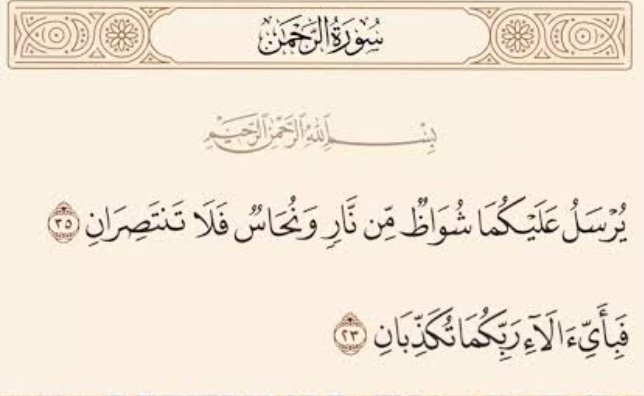 سُورَةُ الرَّحْمَٰن
بِسْمِ ٱللَّهِ ٱلرَّحْمَٰنِ ٱلرَّحِيمِ
يُرْسَلُ عَلَيْكُمَا شُوَاظٌ مِّن نَّارٍ وَنُحَاسٌ فَلَا تَنتَصِرَانِ ٣٥
فَبِأَيِّ ءَالَآءِ رَبِّكُمَا تُكَذِّبَانِ ٢٣